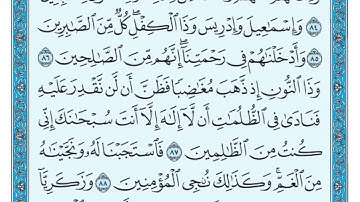 ٨٤ وَإِسْمَٰعِيلَ وَإِدْرِيسَ وَذَا ٱلْكِفْلِۖ كُلٌّ مِّنَ ٱلصَّٰبِرِينَ
٨٥ وَأَدْخَلْنَٰهُمْ فِي رَحْمَتِنَآۖ إِنَّهُم مِّنَ ٱلصَّٰلِحِينَ ٨٦
وَذَا ٱلنُّونِ إِذ ذَّهَبَ مُغَٰضِبًا فَظَنَّ أَن لَّن نَّقْدِرَ عَلَيْهِ
فَنَادَىٰ فِي ٱلظُّلُمَٰتِ أَن لَّآ إِلَٰهَ إِلَّآ أَنتَ سُبْحَٰنَكَ إِنِّي
كُنتُ مِنَ ٱلظَّٰلِمِينَ ٨٧ فَٱسْتَجَبْنَا لَهُۥ وَنَجَّيْنَٰهُ
مِنَ ٱلْغَمِّۚ وَكَذَٰلِكَ نُـۨجِي ٱلْمُؤْمِنِينَ ٨٨ وَزَكَرِيَّآ